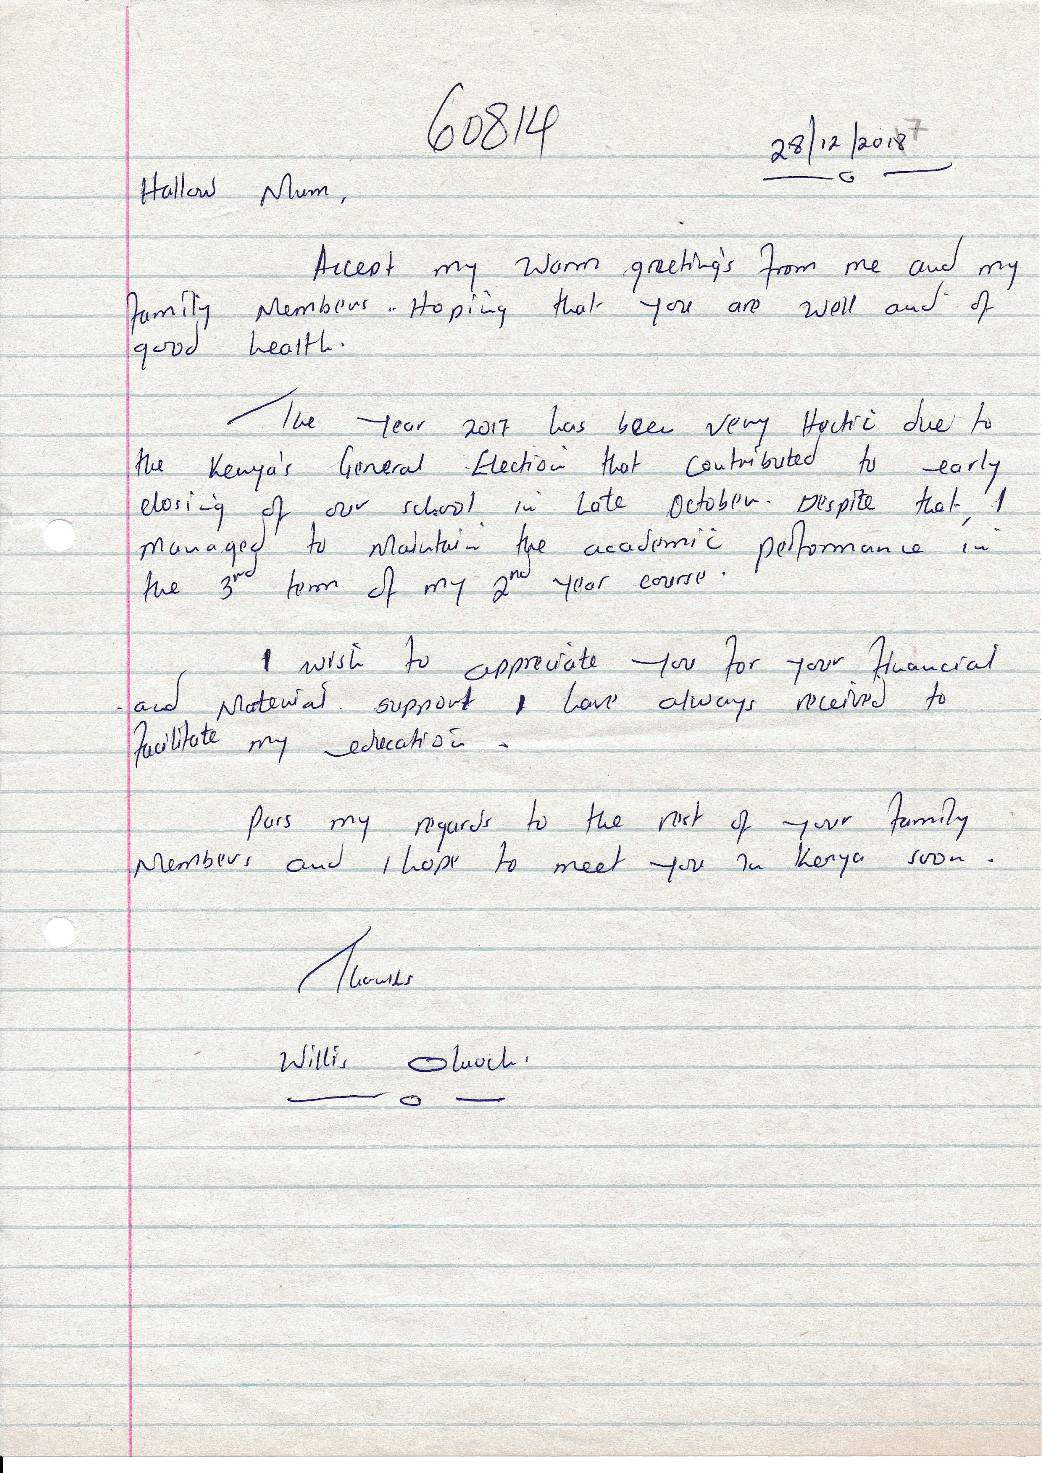 60814
28/12/20187
Hallow Mum,
Accept my Warm greeting's from me and my
family Members. Hoping that you are well and of
good health.
The Year 2017 has been very Hectic due to
the Kenya's General Election that contributed to early
closing of our school in Late October. Despite that, I
managed to Maintain the academic performance in
the 3rd term of my 2nd year course.
I wish to appreciate you for your financial
and Material support I have always received to
facilitate my education.
Pass my regards to the rest of your family
Members and I hope to meet you in Kenya soon.
Thanks
Willis Oluoch.